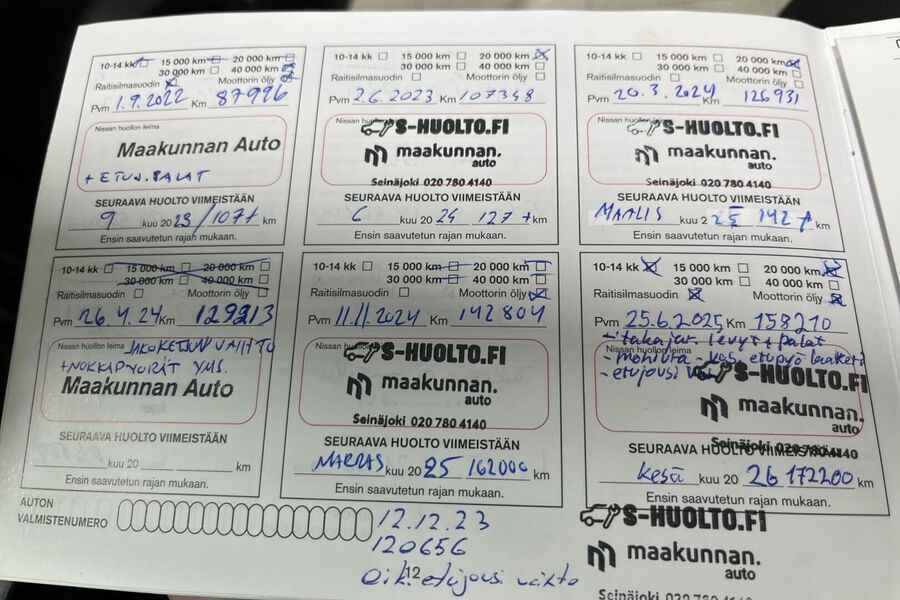 10-14 kk 15 000 km 20 000 km
30 000 km 40 000 km
Raitisilmasuodin Moottorin öljy
Pvm 1.9.2022 Km 87996
Nissan huollon leima
Maakunnan Auto
+ ETUN. PALAT
SEURAAVA HUOLTO VIIMEISTÄÄN
9 kuu 2023/107t km
Ensin saavutetun rajan mukaan.
10-14 kk 15 000 km 20 000 km
30 000 km 40 000 km
Raitisilmasuodin Moottorin öljy
Pvm 2.6.2023 Km 107348
Nissan
S-HUOLTO.FI
maakunnan.
auto
Seinäjoki 020 780 4140
SEURAAVA HUOLTO VIIMEISTÄÄN
6 kuu 20 24 127 t km
Ensin saavutetun rajan mukaan.
10-14 kk 15 000 km 20 000 km
30 000 km 40 000 km
Raitisilmasuodin Moottorin öljy
Pvm 20.3.2024 Km 126931
Nissan huollon leima
S-HUOLTO.FI
maakunnan.
auto
Seinäjoki 020 780 4140
SEURAAVA HUOLTO VIIMEISTÄÄN
MAALIS kuu 2 25 142 t km
Ensin saavutetun rajan mukaan.
10-14 kk 15 000 km 20 000 km
30 000 km 40 000 km
Raitisilmasuodin Moottorin öljy
Pvm 26.4.24 Km 129213
Nissan huollon leima JAKOKETJUN VAIHTO
+NOKKAPYÖRÄT YMS.
Maakunnan Auto
SEURAAVA HUOLTO VIIMEISTÄÄN
kuu 20 km
Ensin saavutetun rajan mukaan.
10-14 kk 15 000 km 20 000 km
30 000 km 40 000 km
Raitisilmasuodin Moottorin öljy
Pvm 11.11.2024 Km 142804
Nissan huollon leima
S-HUOLTO.FI
maakunnan.
auto
Seinäjoki 020 780 4140
SEURAAVA HUOLTO VIIMEISTÄÄN
MARRAS kuu 20 25 162000 km
Ensin saavutetun rajan mukaan.
10-14 kk 15 000 km 20 000 km
30 000 km 40 000 km
Raitisilmasuodin Moottorin öljy
Pvm 25.6.2025 Km 158210
- takajar. levyt + palat
Nissan huollon leima
- vas. etupyö laakeri
- etujousi vas
S-HUOLTO.FI
maakunnan.
auto
Seinäjoki 020 780 4140
SEURAAVA HUOLTO VIIMEISTÄÄN
Kesä kuu 20 26 172200 km
Ensin saavutetun rajan mukaan.
AUTON
VALMISTENUMERO
12.12.23
120656
Oik. etujousi vaihto
12
S-HUOLTO.FI
maakunnan.
auto
Seinäjoki 020 780 4140